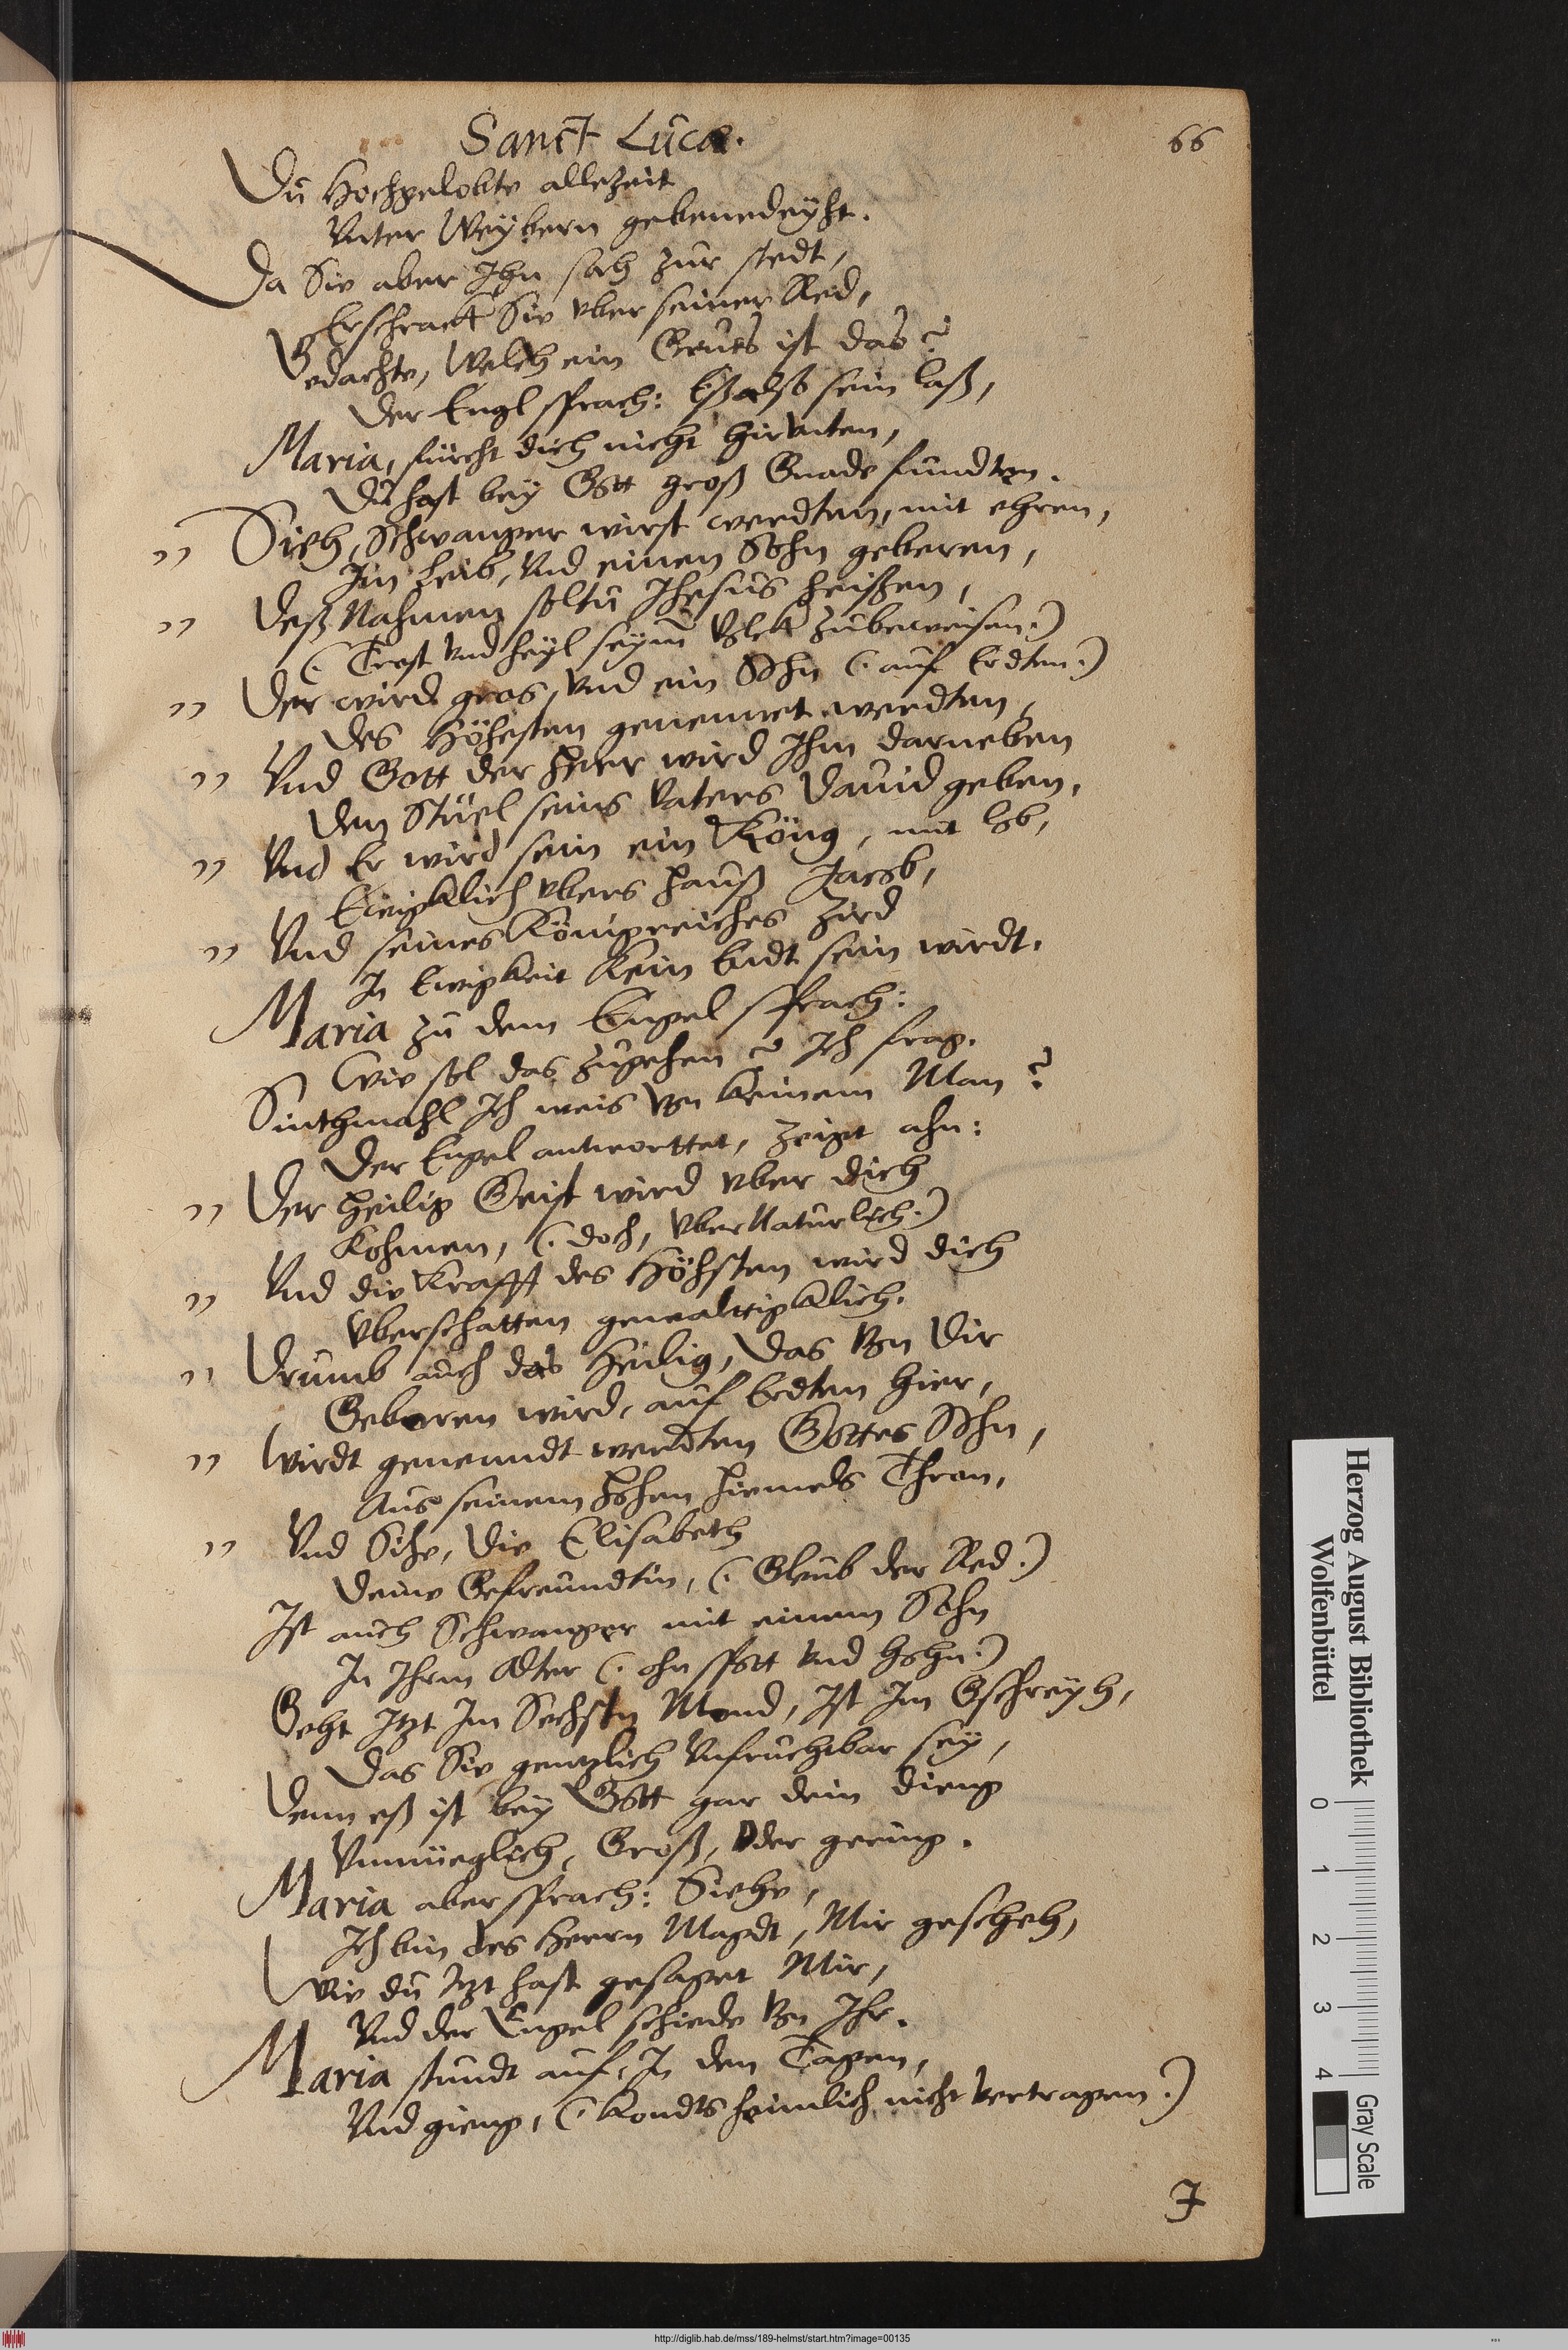 Sanct Lucæ.
66
Du Hochgelobte allezeit
Vnter Weybern gebenedeyht.
Da Sie aber Ihn sah zur stedt,
Erschrackt Sie vber seiner Red,
Gedachte, Welch ein Grues ist das?
Der Engl sprach: Eß also sein laß,
Maria, fürcht dich nicht hirunten,
Du hast bey Gott groß Gnade fundten.
" Sieh, Schwanger wirst werdten, mit ehren,
Im Leib, Vnd einen Sohn geberen,
" Deß Nahmen soltu Jhesus heißen,
(. Trost vnd heyl seym Volck zubeweisen.)
" Der wird gros, vnd ein Sohn (. auf Erdten.)
Des Höhesten genennet werdten,
" Vnd Gott der Herr wird Ihm darneben
Den Stüel seins Vaters Dauid geben,
" Vnd Er wird sein ein König, mit lob,
Ewigklich vbers hauß Jacob,
" Vnd seines Königreiches Zird
In Ewigkeit Kein Endt sein wirdt.
Maria zu dem Engel sprach:
Wie sol das zugehen? Ich frag.
Sinthmahl Ich weis von keinem Man?
Der Engel antworttet, zeigt ahn:
" Der heilig Geist wird vber dich
Kohmen, (. doch, vberNatürlich.)
" Vnd die Krafft des Höhsten wird dich
Vberschatten gewaltigklich.
" Drumb auch das Heilig, Das Von Dir
Geboren wird, auf Erdten hier,
" Wirdt genenndt werdten Gottes Sohn,
Aus seinem hohen hiemels Thron,
" Vnd Sihe, Die Elisabeth
Deine Gefreundtin, (. Gleub der Red.)
Ist auch Schwanger mit einem Sohn
In Ihrm Alter (. ohn spott vnd hohn.)
Geht Itzt Im Sechstn Mond, Ist Im Gschreyh,
Das Sie gentzlich Vnfruchtbar sey,
Denn eß ist bey Gott gar kein dieng
Vnmüeglich, Groß, Oder gering.
Maria aber sprach: Siehe,
Ich bin des Herrn Magdt, Mir gescheh,
Wie du Itzt hast gesaget Mir,
Vnd der Engel schiede Von Ihr.
Maria stundt auf, In den Tagen,
Vnd gieng, (. Kondts heimlich nicht vertragen.)
J
Herzog August Bibliothek
Wolfenbüttel
0 1 2 3 4
Gray Scale
http://diglib.hab.de/mss/189-helmst/start.htm?image=00135